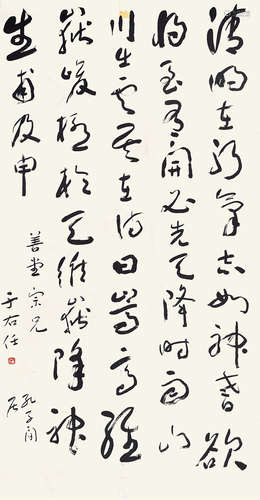 清明在躬氣志如神嗜欲
將至有開必先天降時雨山
川出雲其在詩曰嵩高維
嶽峻極於天維嶽降神
生甫及申
善堂宗兄
于右任
孔子閒
居